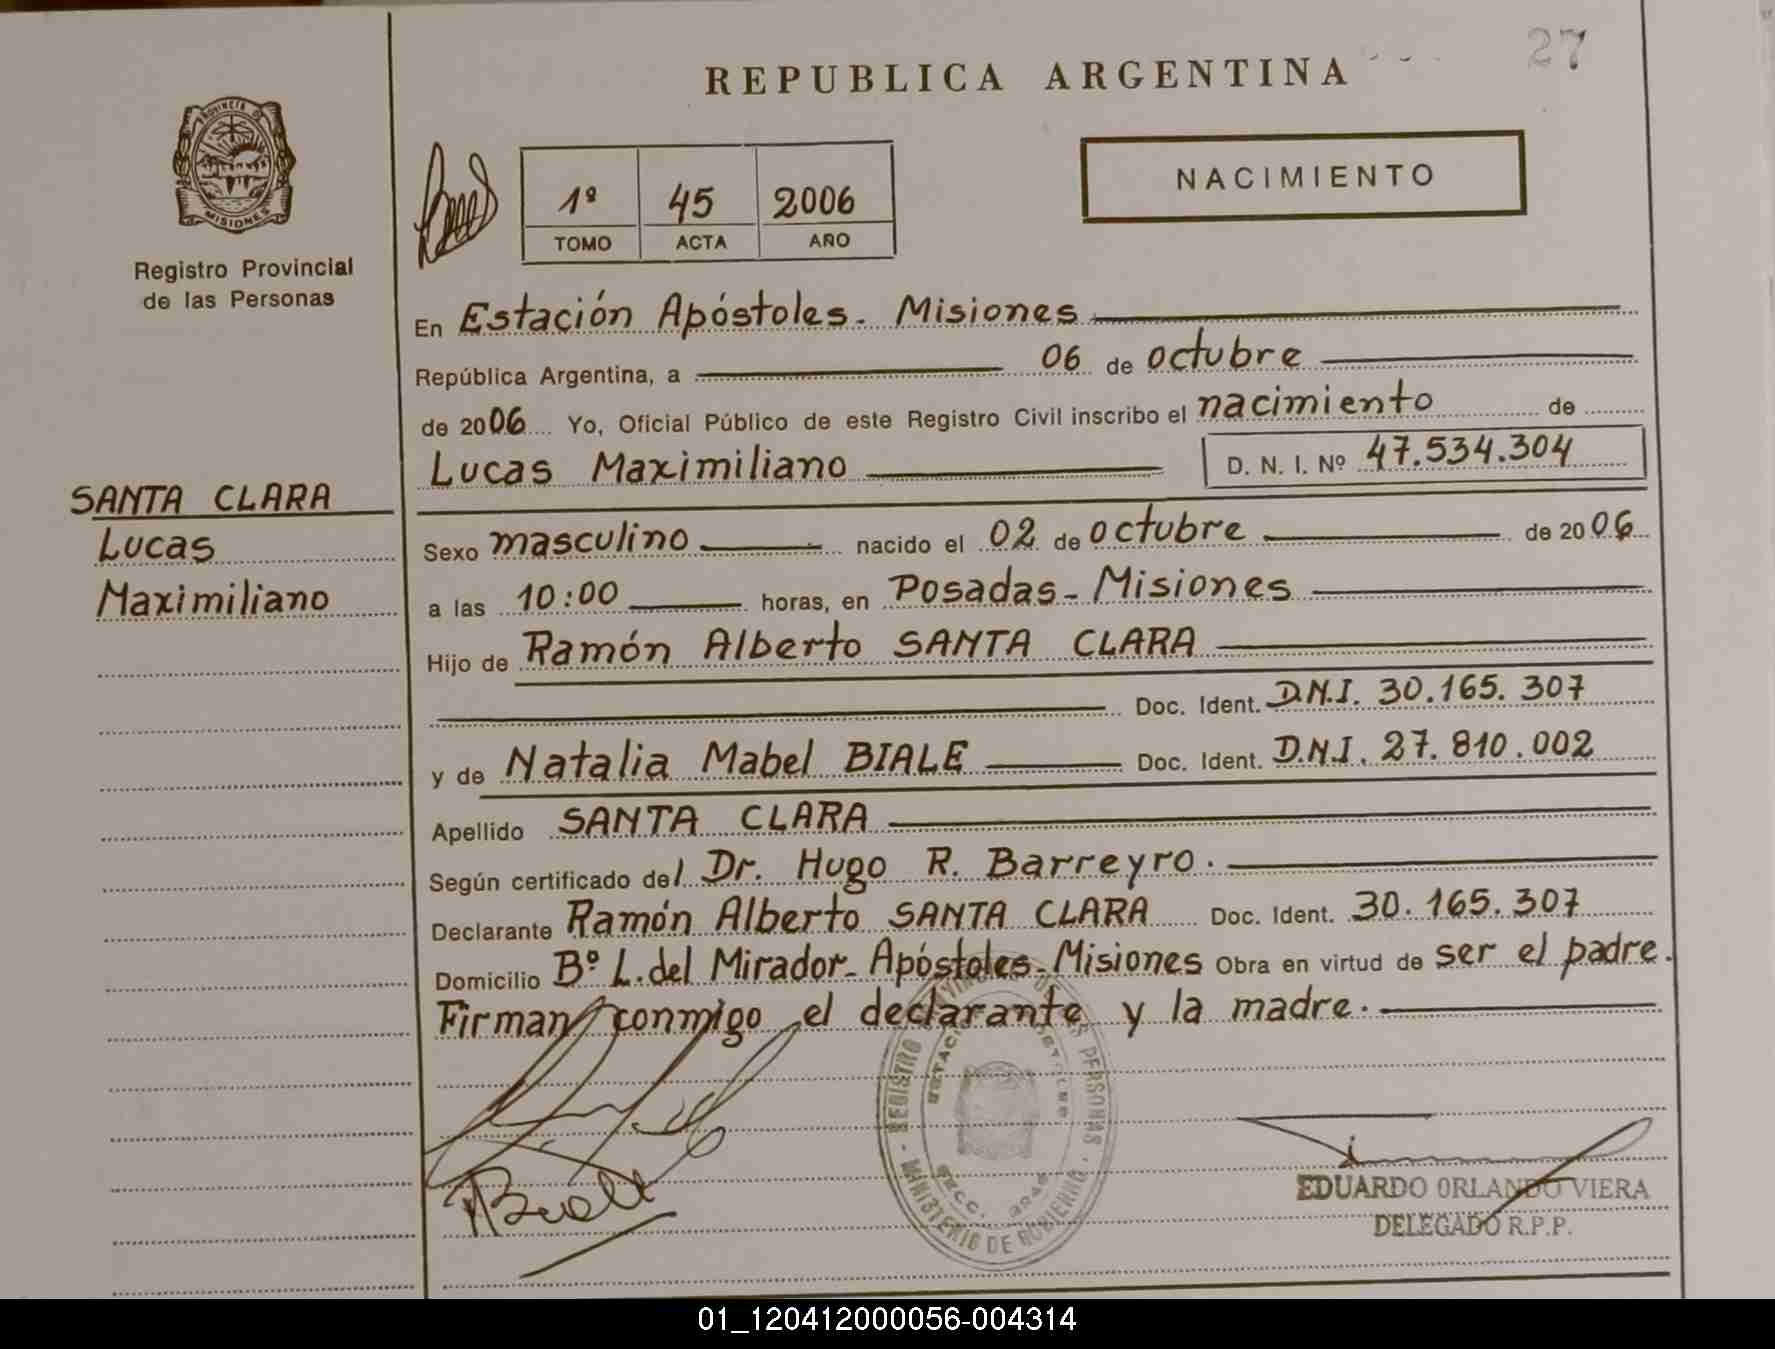 27
REPUBLICA ARGENTINA
PROVINCIA DE
MISIONES
Registro Provincial
de las Personas
1º 45 2006
TOMO ACTA AÑO
NACIMIENTO
En Estación Apóstoles - Misiones
República Argentina, a 06 de octubre
de 2006 Yo, Oficial Público de este Registro Civil inscribo el nacimiento de
Lucas Maximiliano D. N. I. Nº 47.534.304
SANTA CLARA
Lucas
Maximiliano
Sexo masculino nacido el 02 de octubre de 2006
a las 10:00 horas, en Posadas - Misiones
Hijo de Ramón Alberto SANTA CLARA
Doc. Ident. D.N.I. 30.165.307
y de Natalia Mabel BIALE Doc. Ident. D.N.I. 27.810.002
Apellido SANTA CLARA
Según certificado del Dr. Hugo R. Barreyro.
Declarante Ramón Alberto SANTA CLARA Doc. Ident. 30.165.307
Domicilio Bº L. del Mirador - Apóstoles - Misiones Obra en virtud de ser el padre.
Firman conmigo el declarante y la madre.
REGISTRO PERSONAS
MINISTERIO DE GOBIERNO
Biale
EDUARDO ORLANDO VIERA
DELEGADO R.P.P.
01_120412000056-004314